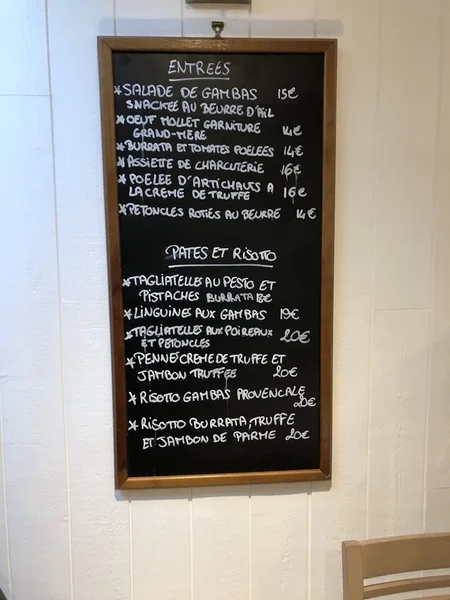 ENTREES
*SALADE DE GAMBAS 15€
SNACKÉE AU BEURRE D'AIL
*OEUF MOLLET GARNITURE
GRAND-MÈRE 14€
*BURRATA ET TOMATES POELEES 14€
*ASSIETTE DE CHARCUTERIE 16€
*POELEE D'ARTICHAUTS A
LA CREME DE TRUFFE 16€
*PETONCLES ROTIES AU BEURRE 14€
PATES ET RISOTTO
*TAGLIATELLES AU PESTO ET
PISTACHES BURRATA 18€
*LINGUINES AUX GAMBAS 19€
*TAGLIATELLES AUX POIREAUX
ET PETONCLES 20€
*PENNES CREME DE TRUFFE ET
JAMBON TRUFFEE 20€
*RISOTTO GAMBAS PROVENCALE
20€
*RISOTTO BURRATA, TRUFFE
ET JAMBON DE PARME 20€